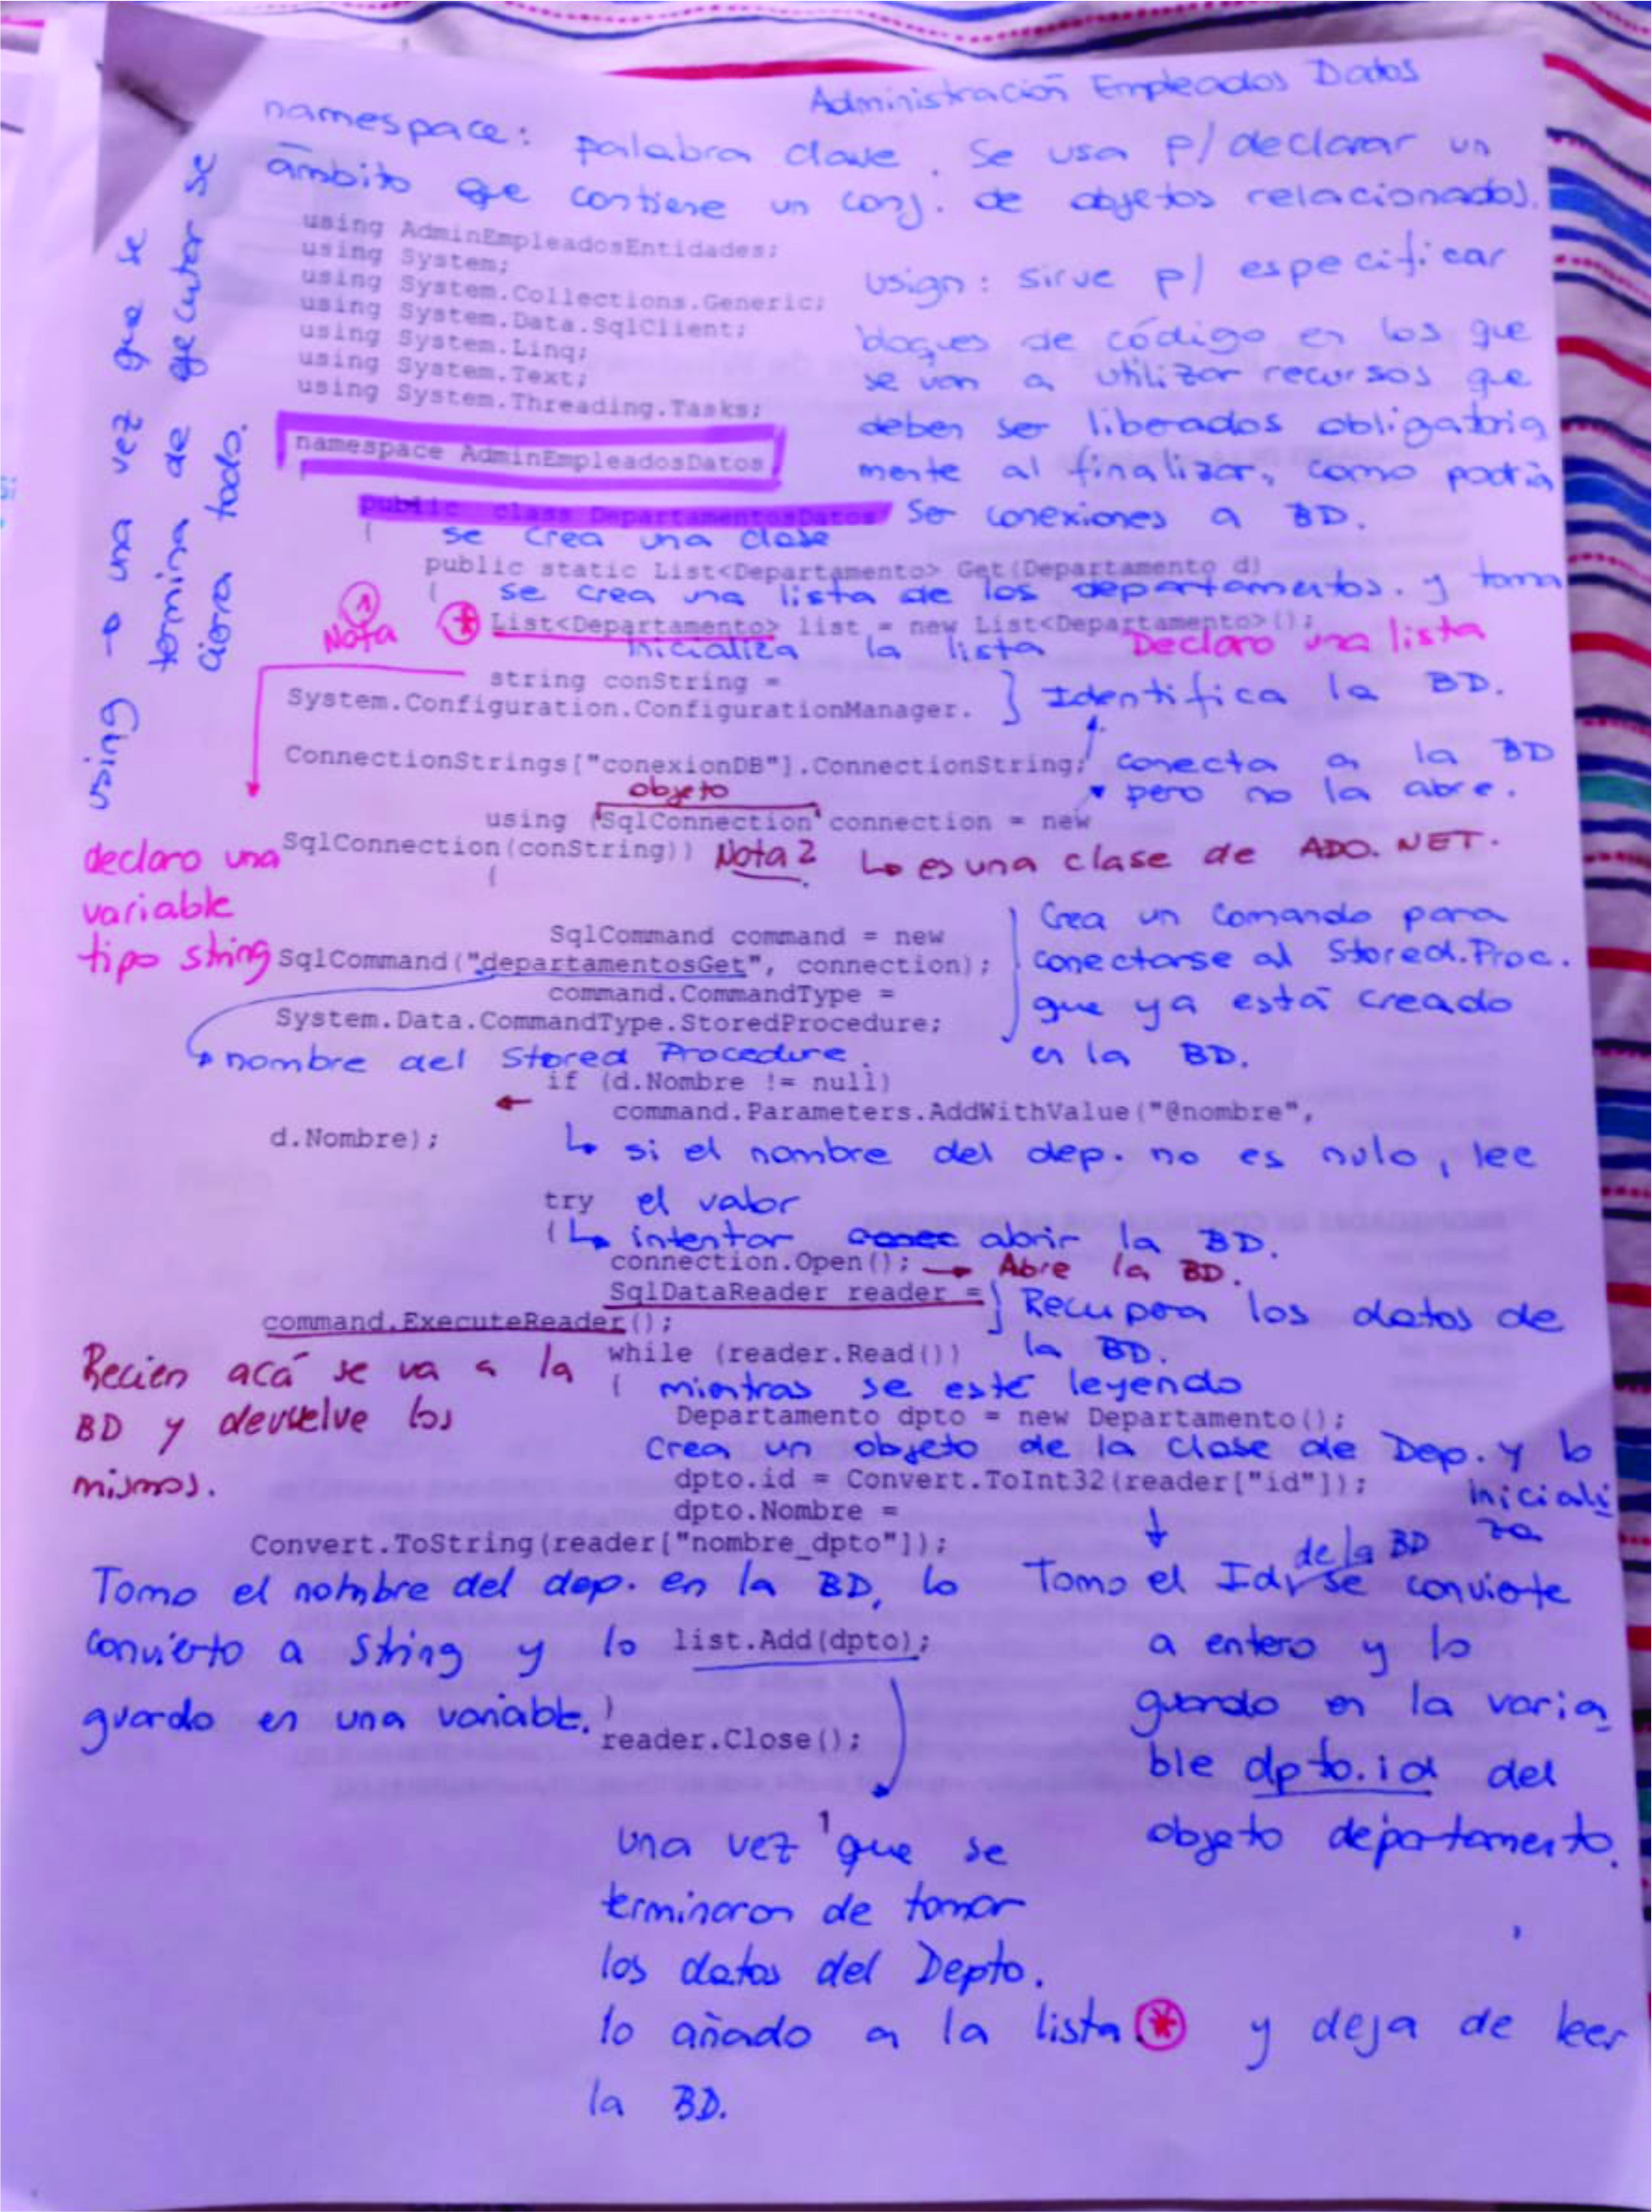 Administración Empleados Datos
namespace: palabra clave. Se usa p/ declarar un
ámbito que contiene un conj. de objetos relacionados.
using AdminEmpleadosEntidades;
using System;
using System.Collections.Generic;
using System.Data.SqlClient;
using System.Linq;
using System.Text;
using System.Threading.Tasks;
usign: sirve p/ especificar
bloques de código en los que
se van a utilizar recursos que
deben ser liberados obligatoria
mente al finalizar, como podría
ser conexiones a BD.
using → una vez que se
termina de ejecutar se
cierra todo.
namespace AdminEmpleadosDatos
{
public class DepartamentosDatos
{
se crea una clase
public static List<Departamento> Get(Departamento d)
{
se crea una lista de los departamentos. y toma
1
Nota
* List<Departamento> list = new List<Departamento>();
inicializa la lista
Declaro una lista
string conString =
System.Configuration.ConfigurationManager.
} Identifica la BD.
ConnectionStrings["conexionDB"].ConnectionString;
conecta a la BD
pero no la abre.
objeto
using (SqlConnection connection = new
SqlConnection(conString))
Nota 2
↳ es una clase de ADO.NET.
declaro una
variable
tipo string
{
SqlCommand command = new
SqlCommand("departamentosGet", connection);
command.CommandType =
System.Data.CommandType.StoredProcedure;
Crea un comando para
conectarse al Stored.Proc.
que ya está creado
en la BD.
nombre del Stored Procedure.
if (d.Nombre != null)
command.Parameters.AddWithValue("@nombre",
d.Nombre);
↳ si el nombre del dep. no es nulo, lee
el valor
try
{
↳ intentar conec abrir la BD.
connection.Open(); → Abre la BD.
SqlDataReader reader =
command.ExecuteReader();
} Recupera los datos de
la BD.
Recien acá se va a la
BD y devuelve los
mismos.
while (reader.Read())
{
mientras se esté leyendo
Departamento dpto = new Departamento();
Crea un objeto de la clase de Dep. y lo
iniciali
za
dpto.id = Convert.ToInt32(reader["id"]);
dpto.Nombre =
Convert.ToString(reader["nombre_dpto"]);
Tomo el nombre del dep. en la BD, lo
convierto a string y lo
guardo en una variable.
Tomo el Id, de la BD se convierte
a entero y lo
guardo en la varia
ble dpto.id del
objeto departamento.
list.Add(dpto);
}
reader.Close();
una vez que se
terminaron de tomar
los datos del Depto.
lo añado a la lista * y deja de leer
la BD.